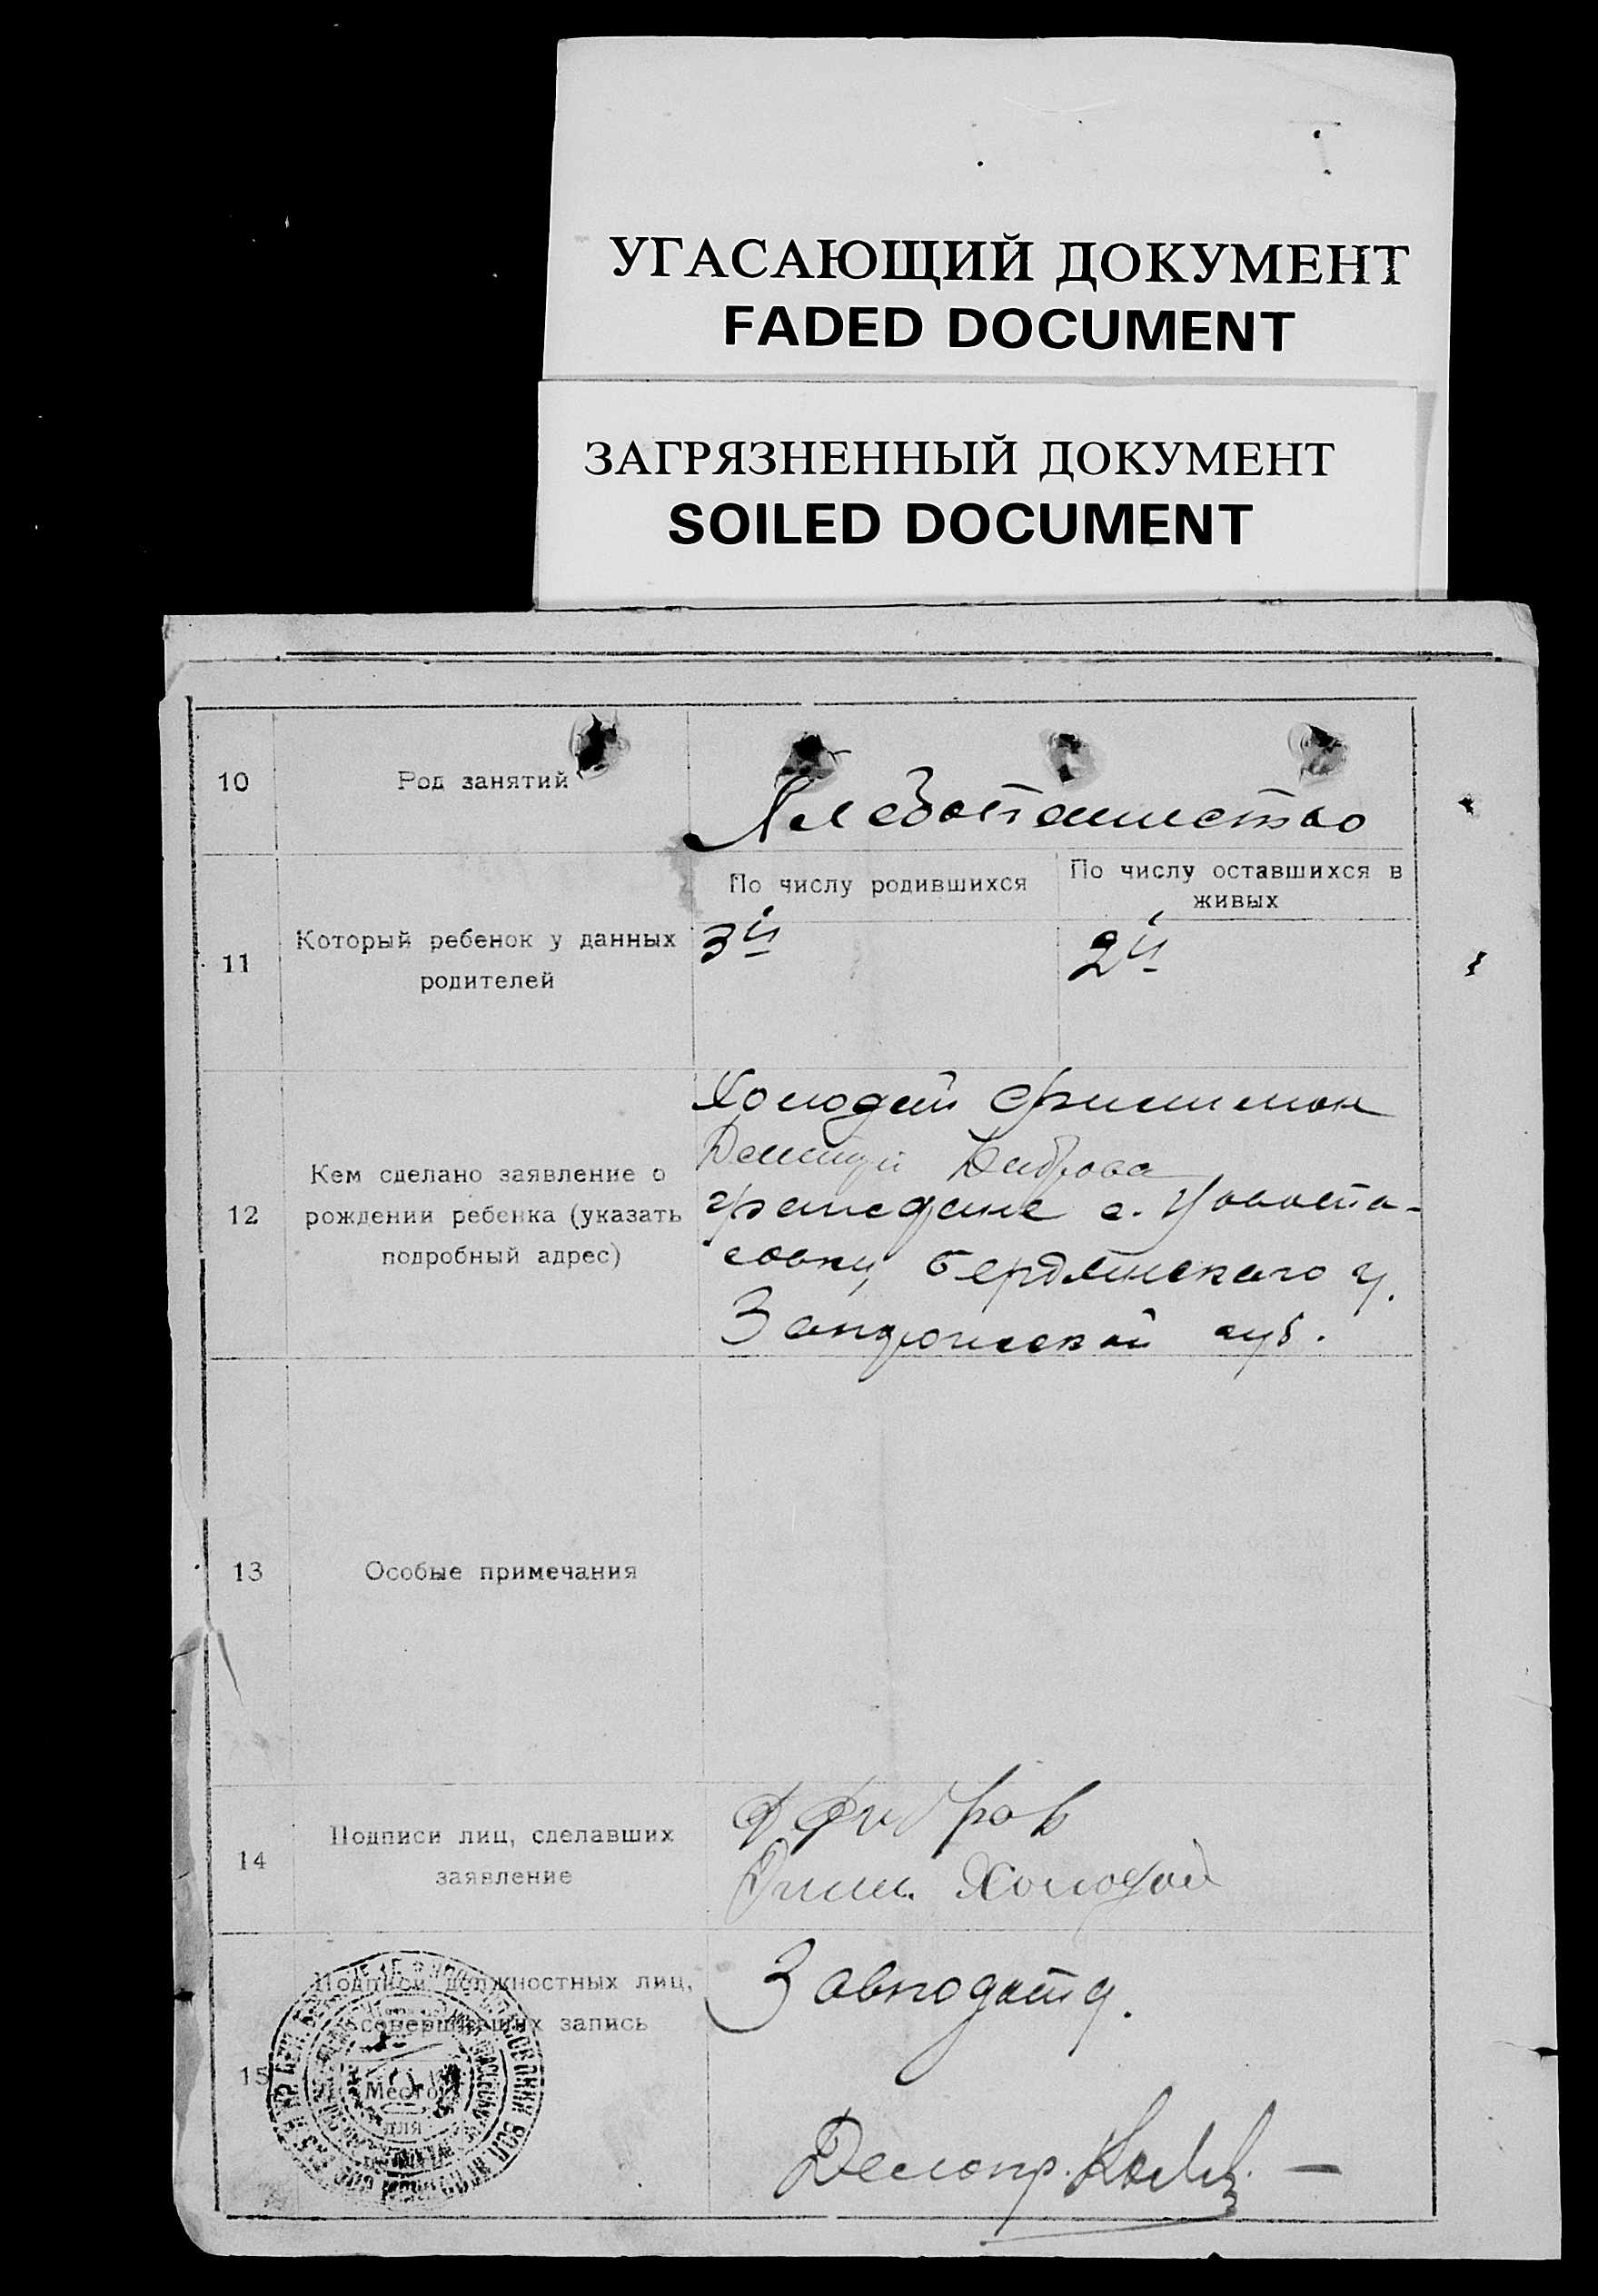 УГАСАЮЩИЙ ДОКУМЕНТ
FADED DOCUMENT
ЗАГРЯЗНЕННЫЙ ДОКУМЕНТ
SOILED DOCUMENT
10
Род занятий
Хлебопашество
11
Который ребенок у данных
родителей
По числу родившихся
3й
По числу оставшихся в
живых
2й
12
Кем сделано заявление о
рождении ребенка (указать
подробный адрес)
Холодий Филимон
граждане с.
Бердянского у.
Запорожской губ.
13
Особые примечания
14
Подписи лиц, сделавших
заявление
Холодий
15
Подписи должностных лиц,
совершивших запись
Место
для
Завподотд.
Делопр.